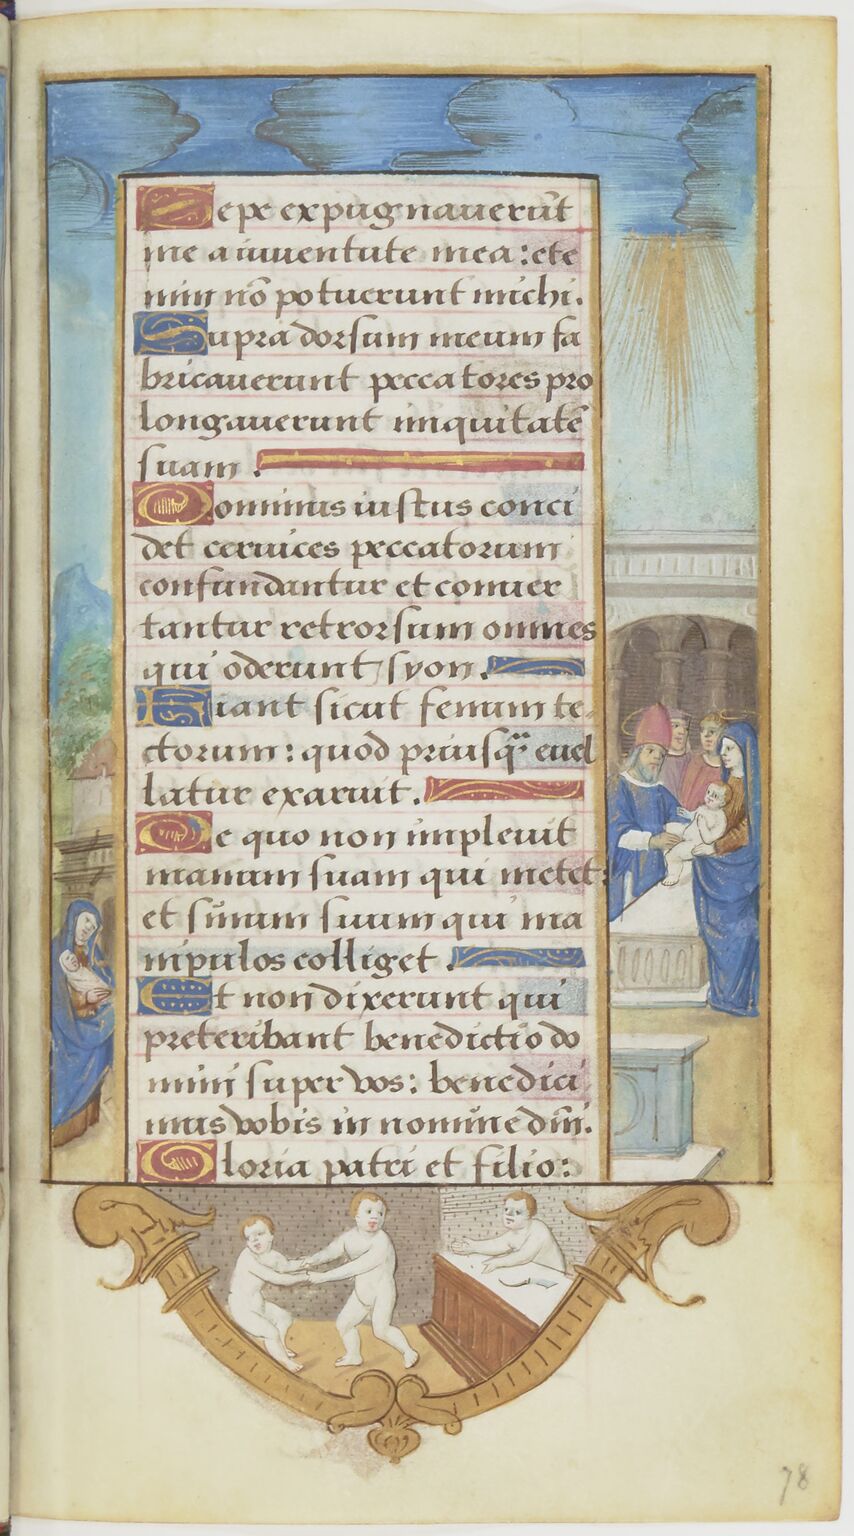 Sepe expugnauerūt
me a iuuentute mea: ete
nim nō potuerunt michi.
Supra dorsum meum fa
bricauerunt peccatores pro
longauerunt iniquitatē
suam.
Dominus iustus conci
det ceruices peccatorum
confundantur et conuer
tantur retrorsum omnes
qui oderunt syon.
Fiant sicut fenum te
ctorum: quod priusq̃ euel
latur exaruit.
De quo non impleuit
manum suam qui metet:
et sinum suum qui ma
nipulos colliget.
Et non dixerunt qui
preteribant benedictio do
mini super vos: benedixi
mus vobis in nomine dñi.
Gloria patri et filio:
78